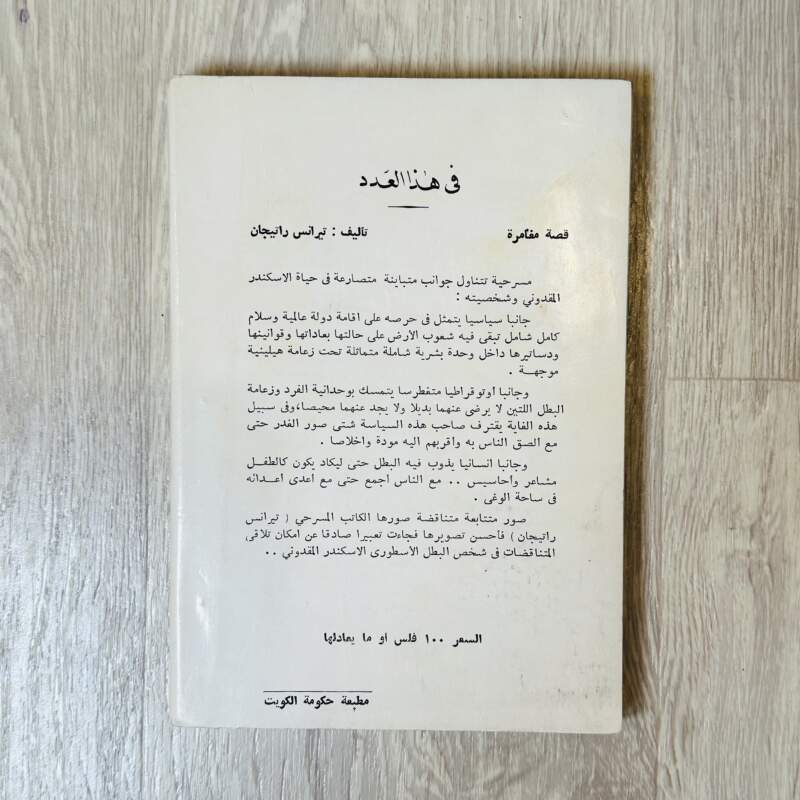 في هذا العدد
قصة مغامرة تأليف : تيرانس راتيجان
مسرحية تتناول جوانب متباينة متصارعة في حياة الاسكندر
المقدوني وشخصيته :
جانبا سياسيا يتمثل في حرصه على اقامة دولة عالمية وسلام
كامل شامل تبقى فيه شعوب الأرض على حالتها بعاداتها وقوانينها
ودساتيرها داخل وحدة بشرية شاملة متماثلة تحت زعامة هيلينية
موجهة .
وجانبا أوتوقراطيا متغطرسا يتمسك بوحدانية الفرد وزعامة
البطل اللتين لا يرضى عنهما بديلا ولا يجد عنهما محيصا، وفي سبيل
هذه الغاية يقترف صاحب هذه السياسة شتى صور الغدر حتى
مع الصق الناس به وأقربهم اليه مودة واخلاصا .
وجانبا انسانيا يذوب فيه البطل حتى ليكاد يكون كالطفل
مشاعر وأحاسيس .. مع الناس أجمع حتى مع أعدى أعدائه
في ساحة الوغى .
صور متتابعة متناقضة صورها الكاتب المسرحي ( تيرانس
راتيجان ) فأحسن تصويرها فجاءت تعبيرا صادقا عن امكان تلاقي
المتناقضات في شخص البطل الأسطوري الاسكندر المقدوني ..
السعر ١٠٠ فلس أو ما يعادلها
مطبعة حكومة الكويت